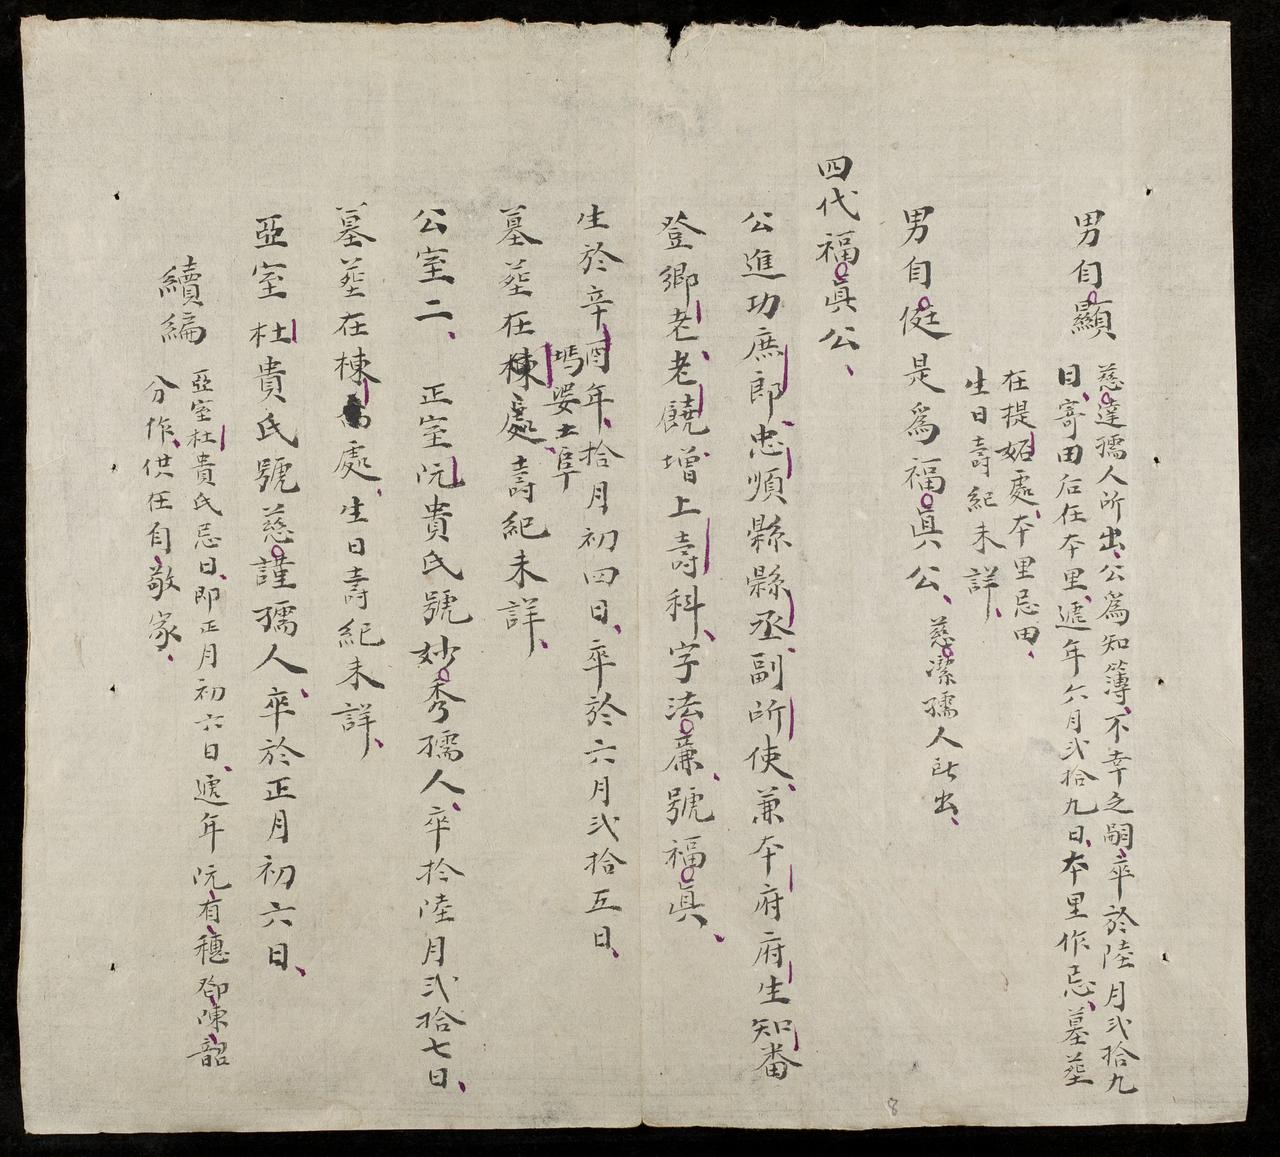 男自顯
慈達孺人所出公爲知簿不幸之嗣卒於陸月弍拾九
日寄田后在本里遞年六月弍拾九日本里作忌墓塟
在提妬處本里忌田
生日壽紀未詳
男自侹是爲福眞公
慈潔孺人所出
四代福眞公
公進功庶郎忠順縣縣丞副所使兼本府府生知番
登鄉老老饒增上壽科字法廉號福眞
生於辛酉年拾月初四日卒於六月弍拾五日
塢婆土阜
墓塟在棟處壽紀未詳
公室二 正室阮貴氏號妙秀孺人卒拾陸月弍拾七日
墓塟在棟處生日壽紀未詳
亞室杜貴氏號慈謹孺人卒於正月初六日
續編
亞室杜貴氏忌日即正月初六日遞年阮有穗鄧陳韶
分作供在自敬家
8